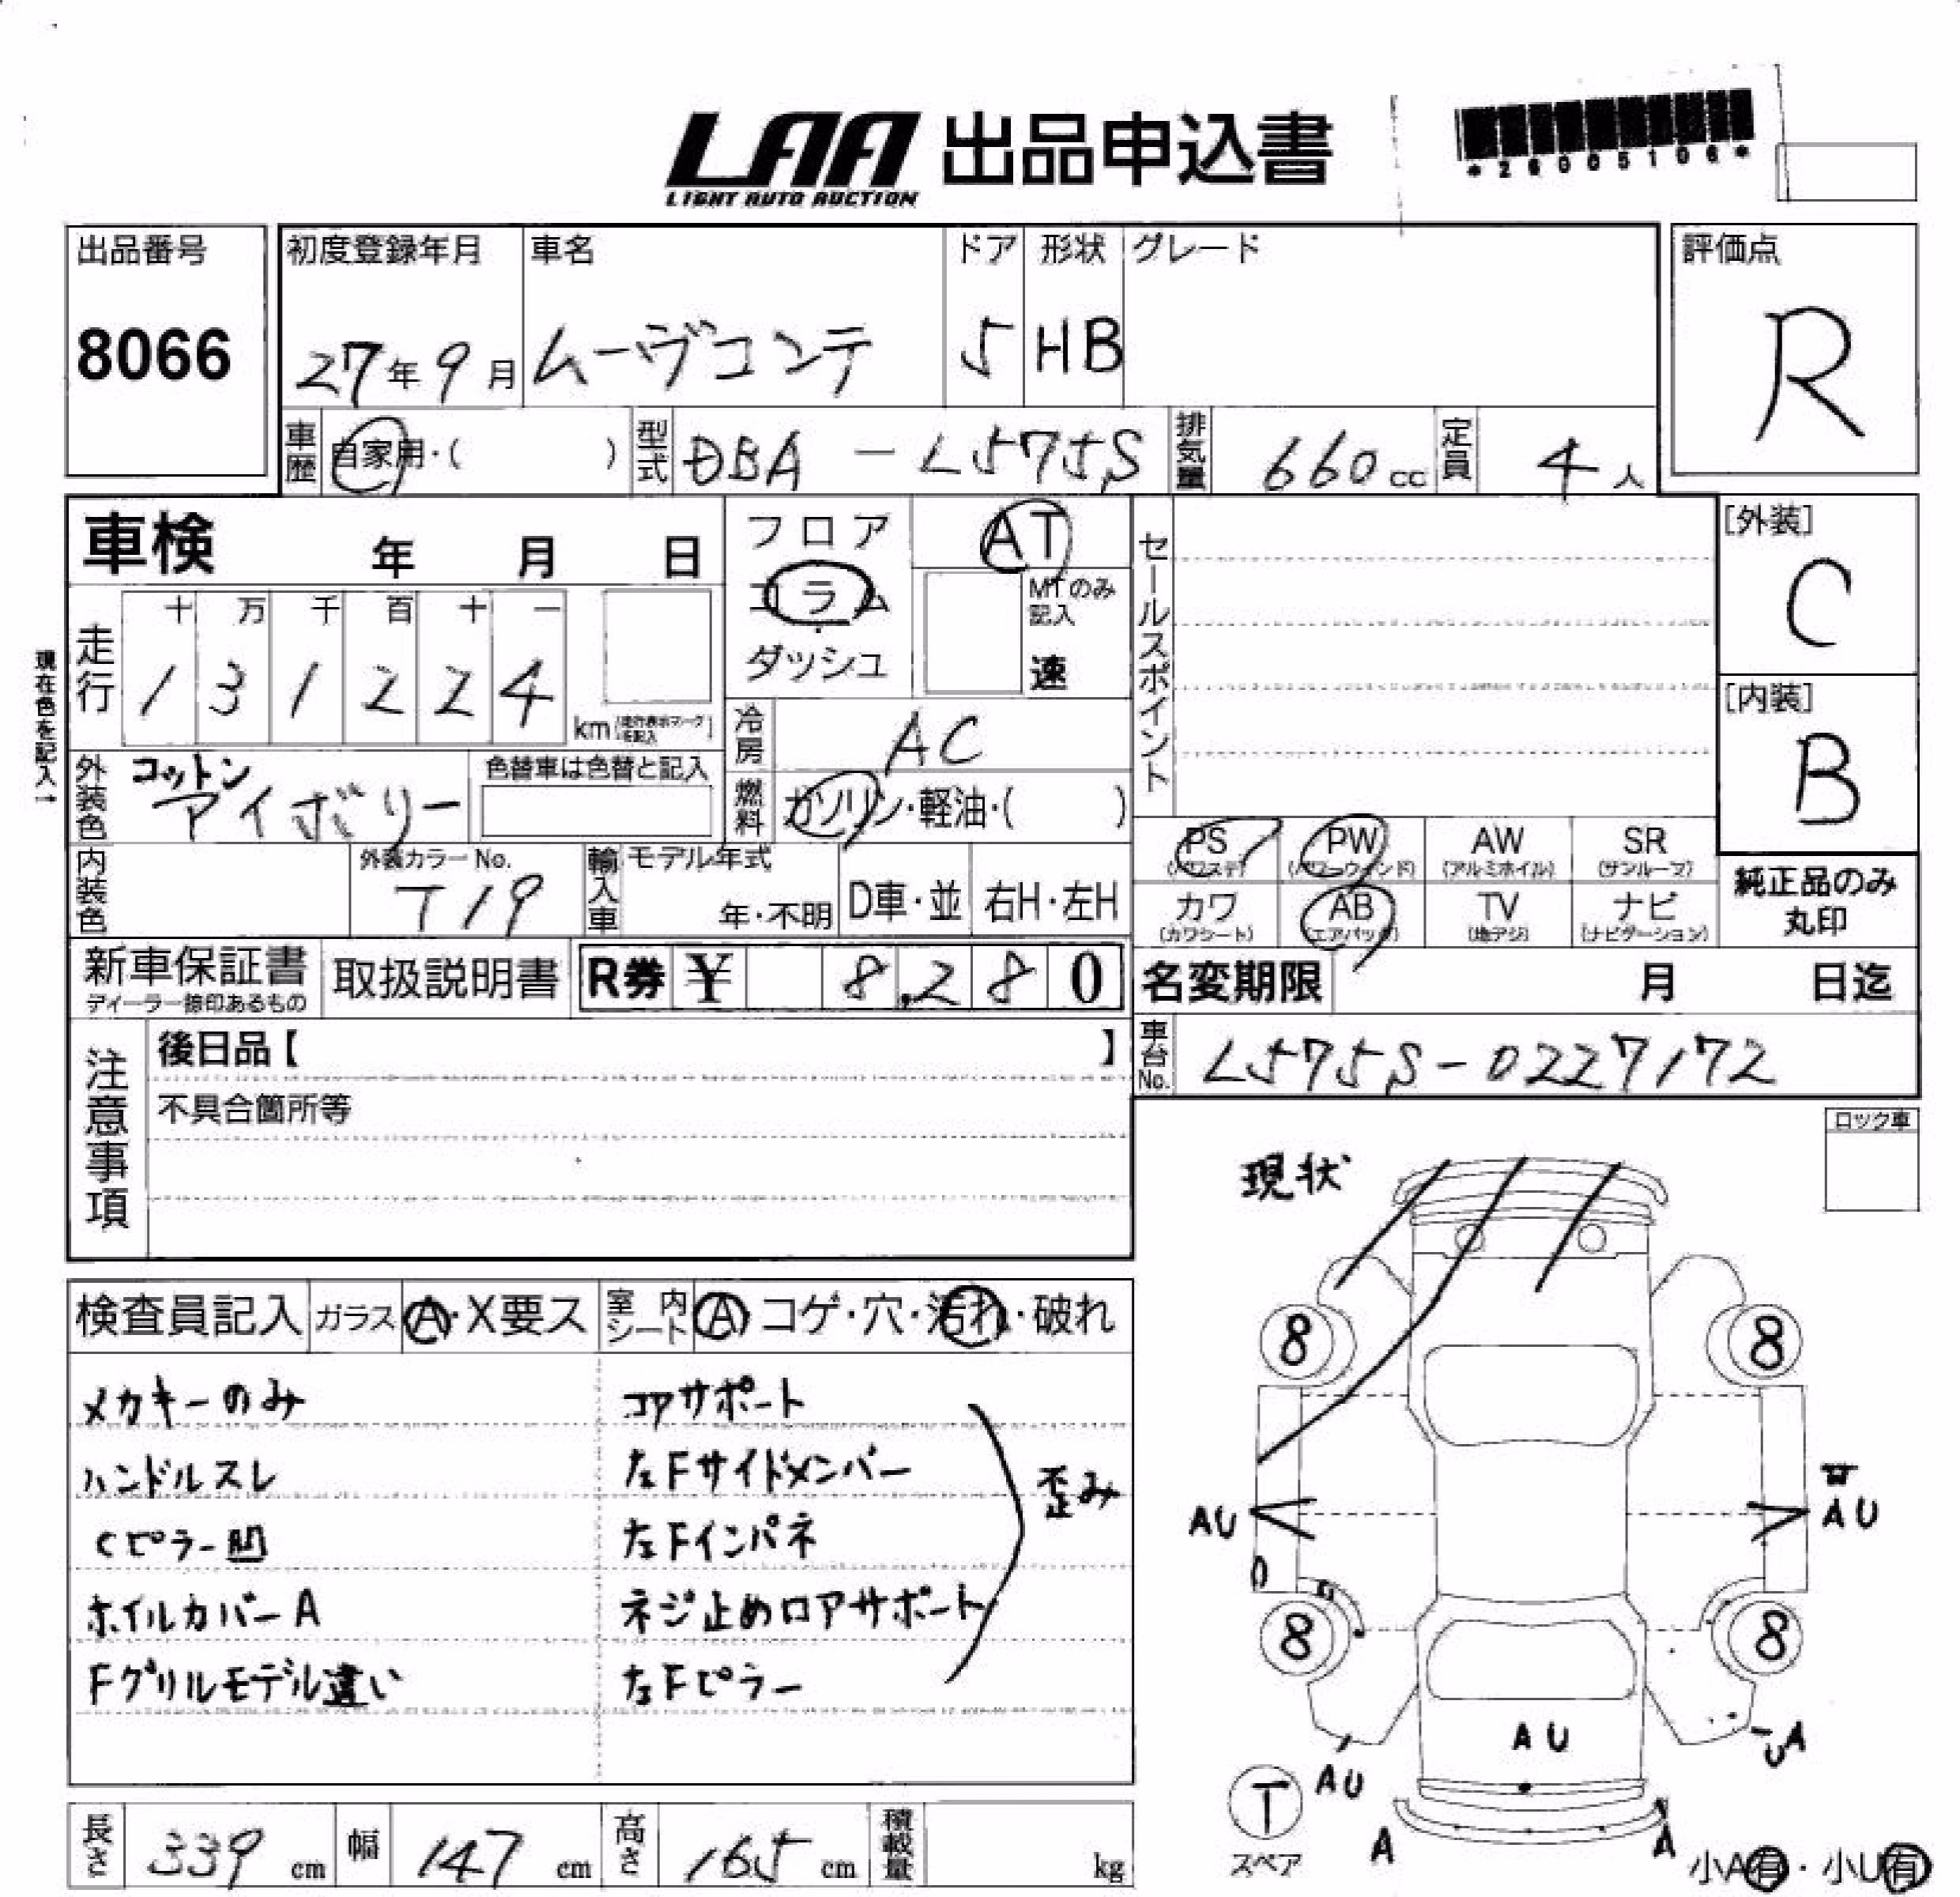 LAA 出品申込書
LIGHT AUTO AUCTION
*26005106*
出品番号
8066
初度登録年月
27年9月
車名
ムーヴコンテ
ドア
5
形状
HB
グレード
評価点
R
車歴
自家用・( )
型式
DBA-L575S
排気量
660cc
定員
4人
車検 年 月 日
フロア
コラム
ダッシュ
AT
MTのみ記入
速
セールスポイント
[外装]
C
[内装]
B
現在色を記入→
走行
十 万 千 百 十 一
1 3 1 2 2 4
km
冷房
AC
燃料
ガソリン・軽油・( )
外装色
コットン
アイボリー
色替車は色替と記入
内装色
外装カラーNo.
T19
輸入車
モデル年式
年・不明
D車・並
右H・左H
PS
(パワステ)
PW
(パワーウィンド)
AW
(アルミホイル)
SR
(サンルーフ)
カワ
(カワシート)
AB
(エアバッグ)
TV
(地デジ)
ナビ
(ナビゲーション)
純正品のみ
丸印
新車保証書
ディーラー捺印あるもの
取扱説明書
R券 ¥ 8,280
名変期限 月 日迄
車台No.
L575S-0227172
注意事項
後日品【 】
不具合箇所等
ロック車
現状
検査員記入
ガラス
A・X要ス
室内シート
A・コゲ・穴・汚れ・破れ
メカキーのみ
ハンドルスレ
Cピラー凹
ホイルカバーA
Fグリルモデル違い
コアサポート
左Fサイドメンバー
左Fインパネ
ネジ止めロアサポート
左Fピラー
歪み
8
8
AU
AU
8
8
AU
AU
UA
T
スペア
A
A
小A有・小U有
長さ
339cm
幅
147cm
高さ
165cm
積載量
kg